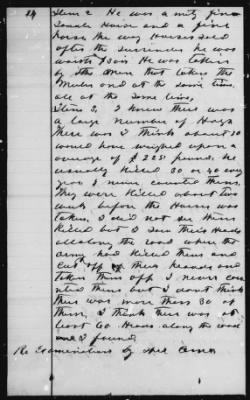 24 Item 2. He was a very fine
Saddle Horse and a fine
horse the way Horses sold
after the surrender he was
worth $300. He was taken
by the men that taken the
Mules and at the same time,
all at the same time,
Item 3, I know there was
a large number of Hogs
there was I think about 30
would have weighed upon a
average of 225 pounds, he
usually killed 30 or 40 every
year I never counted them.
They were killed about two
weeks before the Horses was
taken, I did not see them
killed but I saw their Heads
all along the road where the
army had killed them and
cut off their heads and
taken them off I never coun
ted them but I dont think
there was more than 30 of
them, I think there was at
least 60 Heads along the road
I found
Re Examination by spec Comr